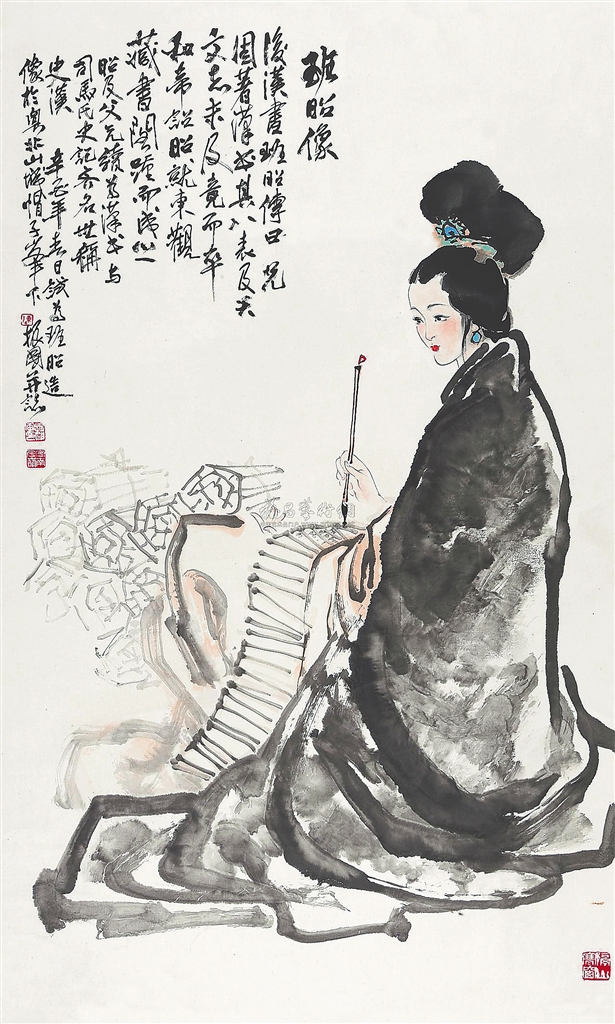 班昭像
後漢書班昭傳曰兄
固著漢書其八表及天
文志未及竟而卒
和帝詔昭就東觀
藏書閣踵而成之
昭及父兄續為漢書與
司馬氏史記齊名世稱
史漢 年春日試為班昭造
像於粤北山城帽子峯下 振國并誌